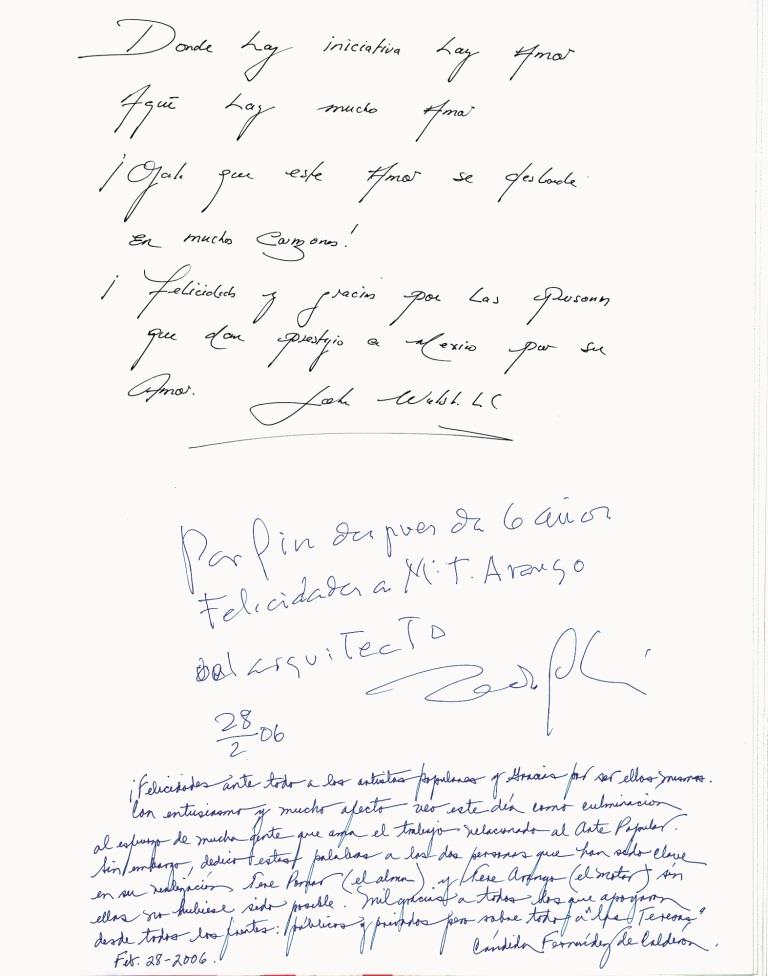 Donde hay iniciativa hay Amor
Aquí hay mucho Amor
¡Ojala que este Amor se desborde
en muchos Corazones!
¡Felicidades y gracias por las personas
que dan prestigio a Mexico por su
Amor. John Walsh. LC
Por fin despues de 6 años
Felicidades a M. T. Arango
al arquitecto
28/2 06
¡Felicidades ante todo a los artistas populares y Gracias por ser ellos mismos.
Con entusiasmo y mucho afecto veo este día como culminación
al esfuerzo de mucha gente que ama el trabajo relacionado al Arte Popular.
Sin embargo, dedico estas palabras a las dos personas que han sido clave
en su realización Tere Pomar (el alma) y Tere Arango (el motor) sin
ellas no hubiese sido posible. Mil gracias a todos los que apoyaron
desde todos los frentes: públicos y privados pero sobre todo a "las Teresas"
Cándida Fernández de Calderón.
Feb. 28-2006.